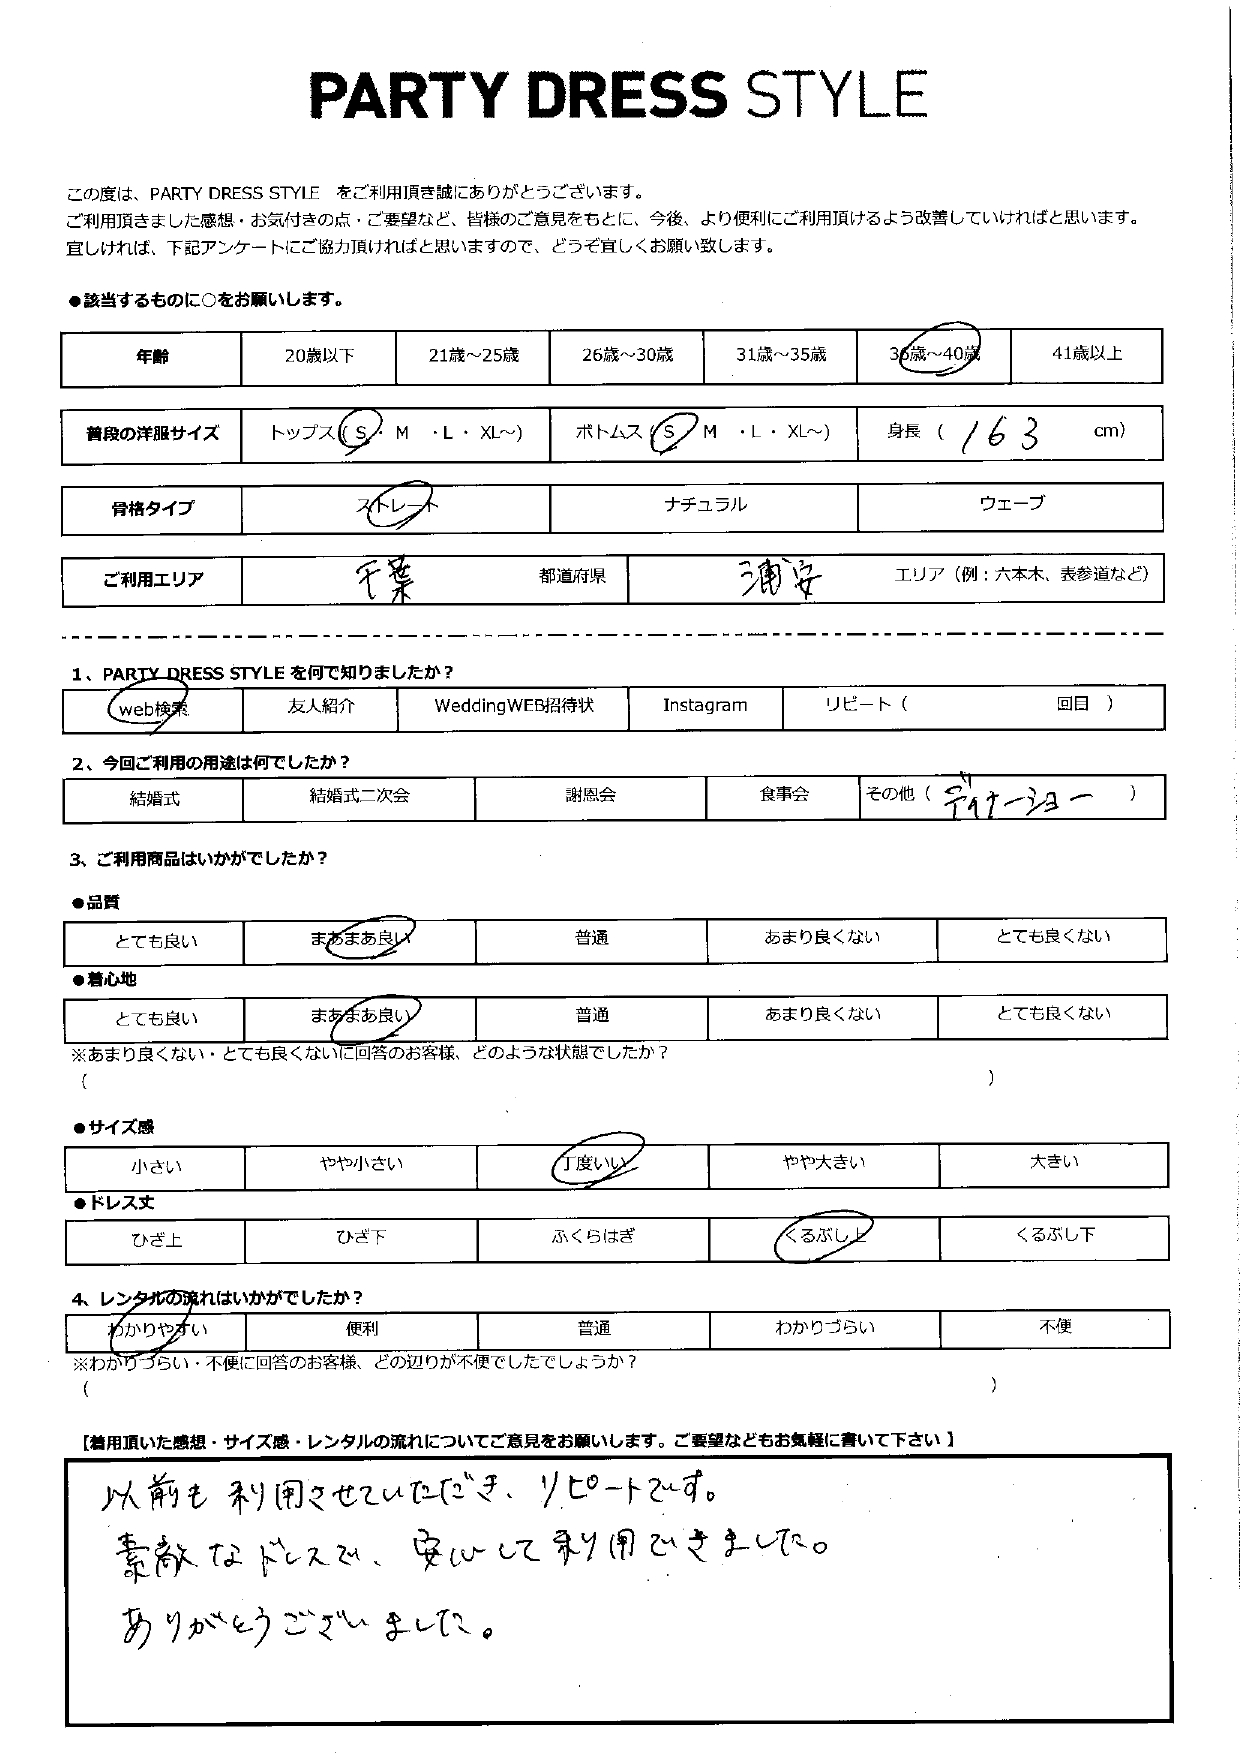 PARTY DRESS STYLE
この度は、PARTY DRESS STYLE をご利用頂き誠にありがとうございます。
ご利用頂きました感想・お気付きの点・ご要望など、皆様のご意見をもとに、今後、より便利にご利用頂けるよう改善していければと思います。
宜しければ、下記アンケートにご協力頂ければと思いますので、どうぞ宜しくお願い致します。
●該当するものに○をお願いします。
年齢 20歳以下 21歳～25歳 26歳～30歳 31歳～35歳 36歳～40歳 41歳以上
普段の洋服サイズ トップス(S・M ・L・XL～) ボトムス(S・M ・L・XL～) 身長 (163 cm)
骨格タイプ ストレート ナチュラル ウェーブ
ご利用エリア 千葉 都道府県 浦安 エリア（例：六本木、表参道など）
1、PARTY DRESS STYLE を何で知りましたか？
web検索 友人紹介 WeddingWEB招待状 Instagram リピート（ 回目 ）
2、今回ご利用の用途は何でしたか？
結婚式 結婚式二次会 謝恩会 食事会 その他（ ディナーショー ）
3、ご利用商品はいかがでしたか？
●品質
とても良い まあまあ良い 普通 あまり良くない とても良くない
●着心地
とても良い まあまあ良い 普通 あまり良くない とても良くない
※あまり良くない・とても良くないに回答のお客様、どのような状態でしたか？
( )
●サイズ感
小さい やや小さい 丁度いい やや大きい 大きい
●ドレス丈
ひざ上 ひざ下 ふくらはぎ くるぶし上 くるぶし下
4、レンタルの流れはいかがでしたか？
わかりやすい 便利 普通 わかりづらい 不便
※わかりづらい・不便に回答のお客様、どの辺りが不便でしたでしょうか？
( )
【着用頂いた感想・サイズ感・レンタルの流れについてご意見をお願いします。ご要望などもお気軽に書いて下さい】
以前も利用させていただき、リピートです。
素敵なドレスで、安心して利用できました。
ありがとうございました。